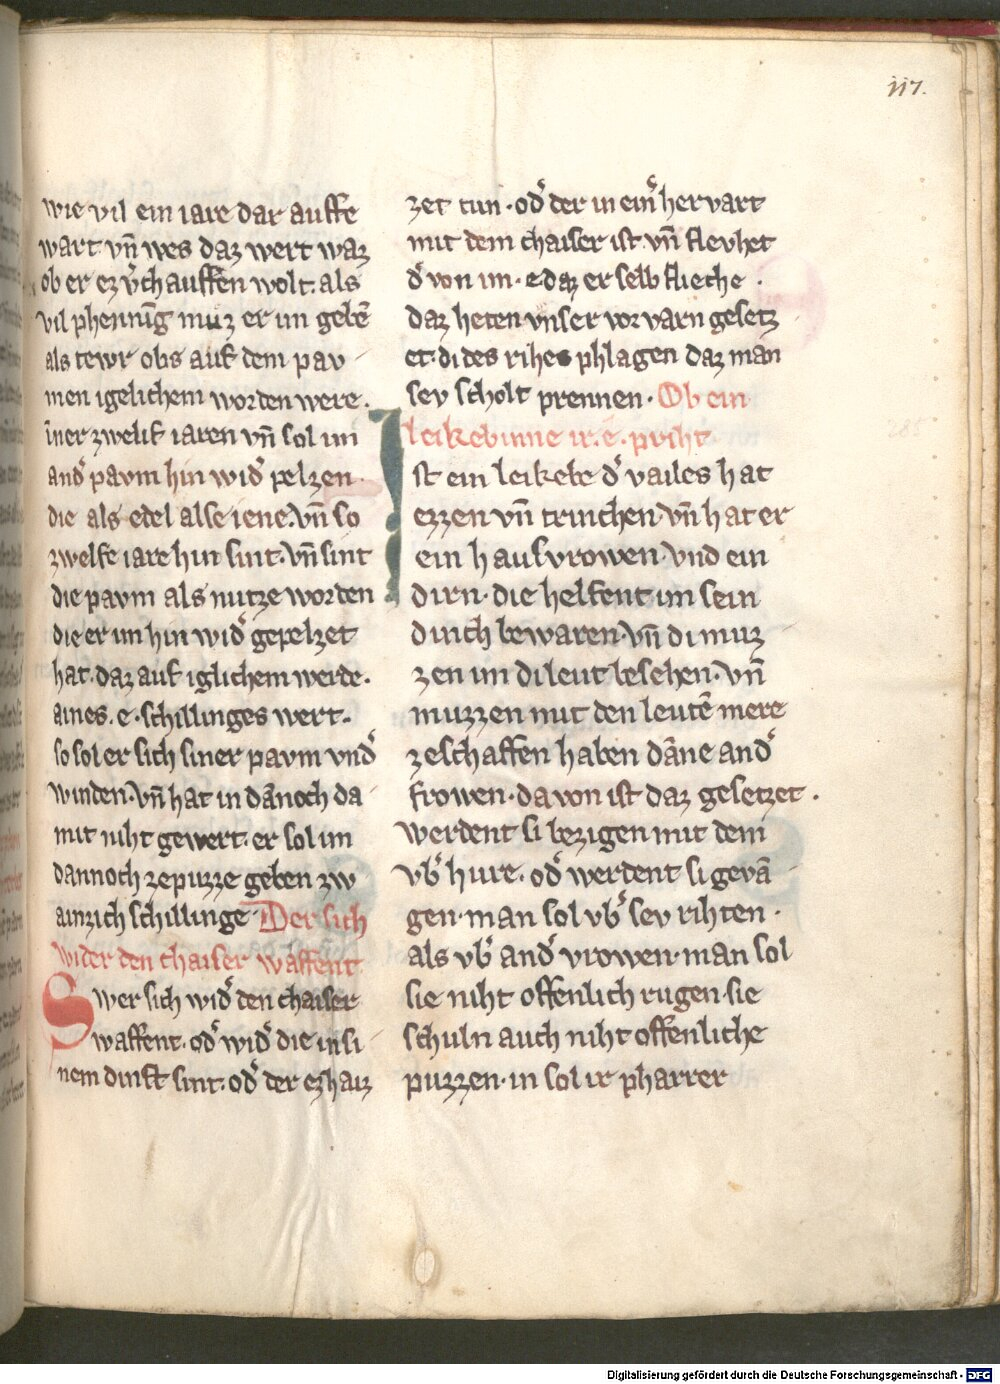 117.
wie vil ein iare dar auffe
wart. vn̄ wes daz wert waz
ob er ez v̾chauffen wolt. als
vil phenning muz er im gebē
als tewr obs auf dem pav
men igelichem worden were.
iner zwelif iaren vn̄ sol im
and̾ pavm hin wid̾ pelzen.
die als edel alse iene. vn̄ so
zwelfe iare hin sint. vn̄ sint
die pavm als nutze worden
die er im hin wid̾ gepelzet
hat. daz auf iglichem werde.
aines. e. schillinges wert.
so sol er sich siner pavm vnd̾
winden. vn̄ hat in dānoch da
mit niht gewert. er sol im
dannoch zepuzze geben zw
ainzich schillinge Der sich
wider den chaiser waffent.
Swer sich wid̾ den chaiser
waffent. od̾ wid̾ die in si
nem dinst sint. od̾ der ez haiz
zet tun. od̾ der in ein̾ hervart
mit dem chaiser ist vn̄ flevhet
d̾ von im. e daz er selb flieche.
daz heten vnser vorvarn gesetz
et. di des riches phlagen daz man
sev scholt prennen. Ob ein
leikebinne ir. e. priht.
Ist ein leikebe d̾ vailes hat
ezzen vn̄ trinchen. vn̄ hat er
ein hausvrowen. vnd ein
dirn. die helfent im sein
dinch bewaren. vn̄ di muz
zen im di leut besehen. vn̄
muzzen mit den leutē mere
zeschaffen haben dāne and̾
frowen. da von ist daz gesetzet.
werdent si bezigen mit dem
vb̾ hure. od̾ werdent si gevā
gen. man sol vb̾ sev rihten.
als vb̾ and̾ vrowen. man sol
sie niht offenlich rugen. sie
schuln auch niht offenliche
puzzen. in sol ir pharrer
Digitalisierung gefördert durch die Deutsche Forschungsgemeinschaft - DFG